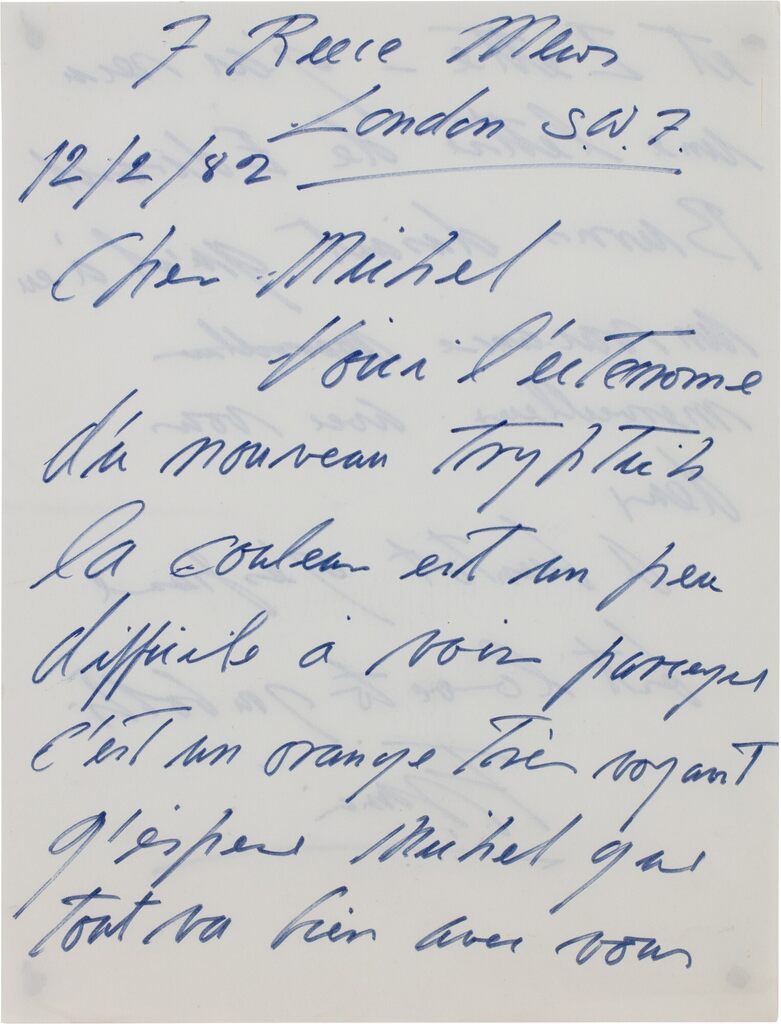 7 Reece Mews
London S.W.7.
12/2/82
Cher Michel
Voici l'ectenrome
d'u nouveau tryptich
la couleur est un peu
difficile à voir parceque
c'est un orange très voyant
J'éspere Michel que
tout va bien avec vous